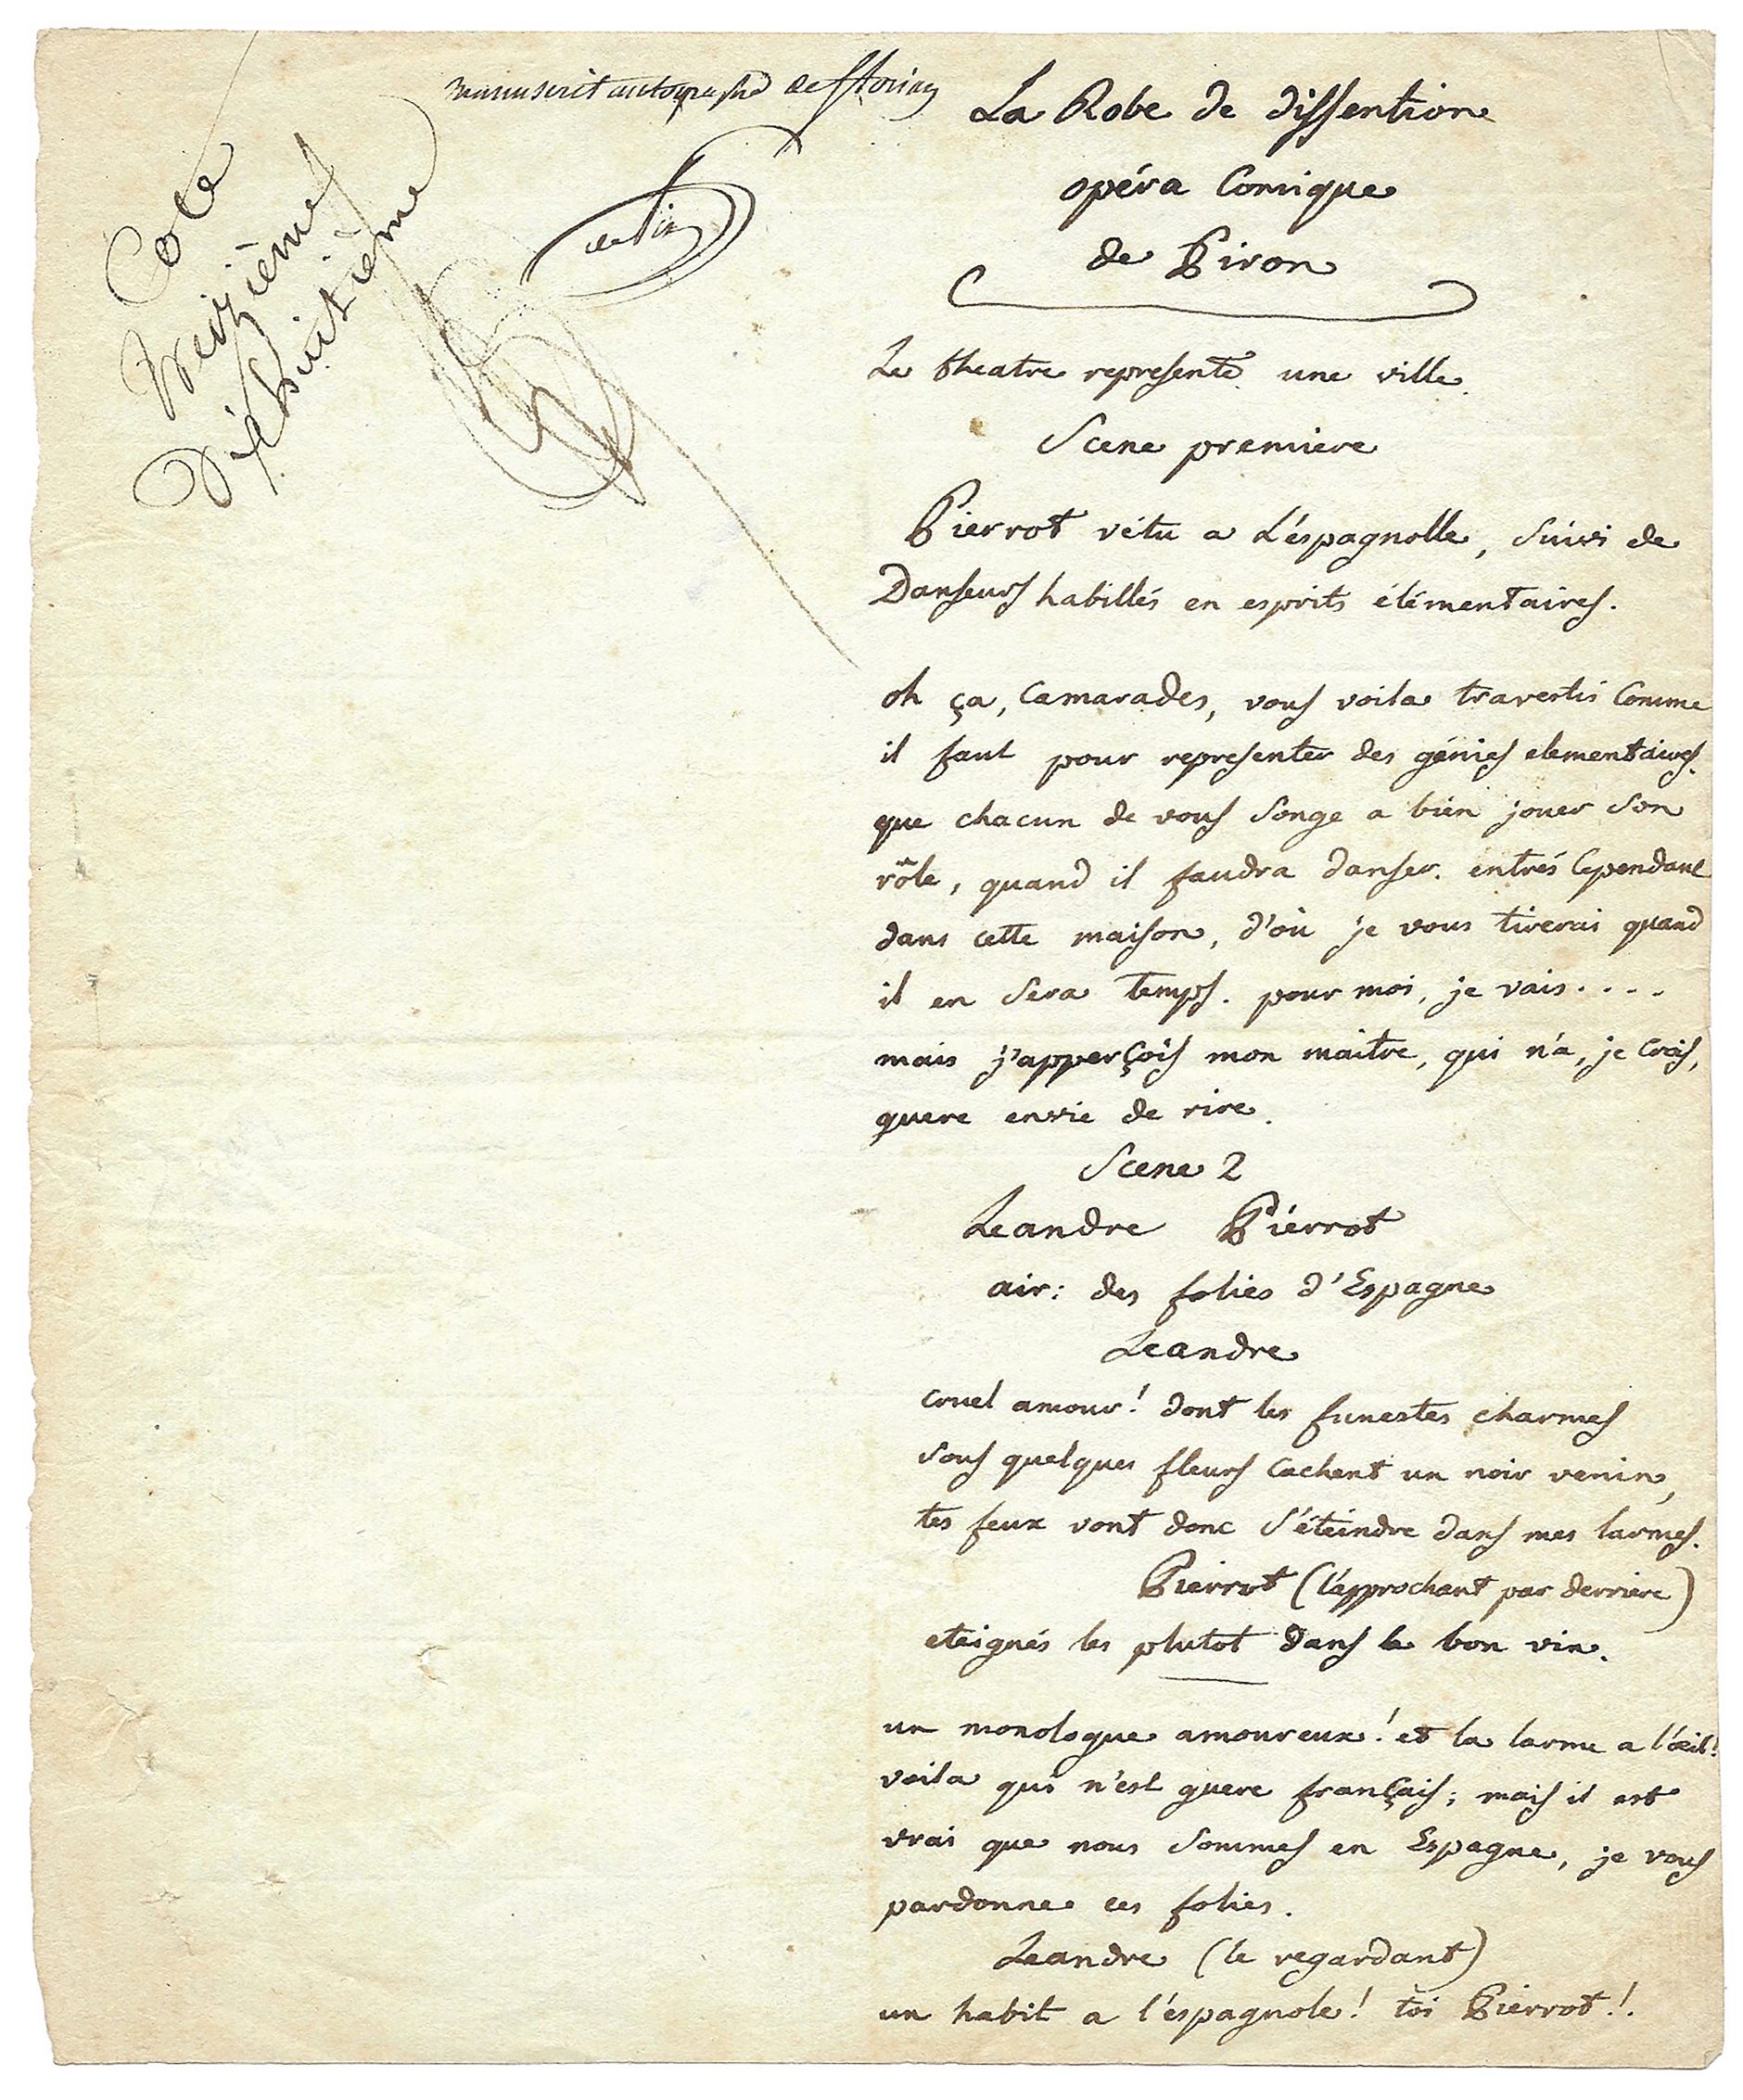 manuscrit autographe de florian
Cote
treizieme
Dixhuitieme
La Robe de dissention
opéra Comique
de Piron
Le theatre represente une ville.
Scene premiere
Pierrot vétu a L'espagnolle, Suivi de
Danseurs habillés en esprits élémentaires.
oh ça, Camarades, vous voila travestis Comme
il faut pour representer des génies elementaires.
que chacun de vous Songe a bien jouer Son
rôle, quand il faudra danser. entrés Cependant
dans cette maison, d'où je vous tirerai quand
il en Sera temps. pour moi, je vais....
mais j'apperçois mon maitre, qui n'a, je Crois,
guere envie de rire.
Scene 2
Leandre Pierrot
air: des folies d'Espagne
Leandre
cruel amour! dont les funestes charmes
Sous quelques fleurs Cachent un noir venin,
tes feux vont donc S'éteindre dans mes larmes.
Pierrot (l'approchant par derriere)
eteignés les plutot dans le bon vin.
un monologue amoureux! et la larme a l'œil!
voila qui n'est guere français; mais il est
vrai que nous Sommes en Espagne, je vous
pardonne ces folies.
Leandre (le regardant)
un habit a l'espagnole! toi Pierrot!.